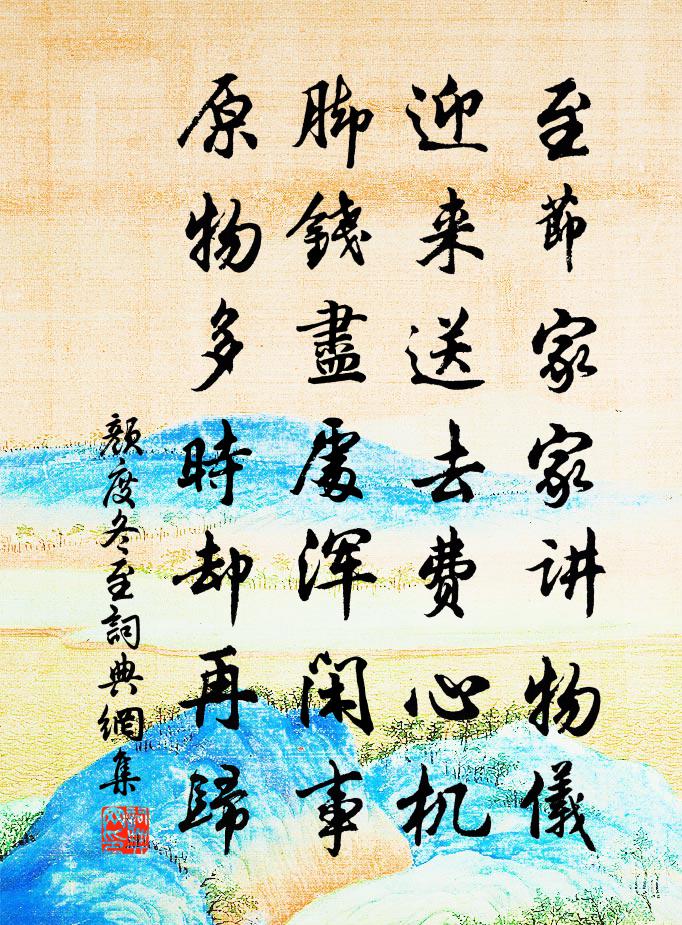 至節家家讲物儀
迎来送去費心机
脚錢盡處浑闲事
原物多時却再歸
顏度冬至詞典網集